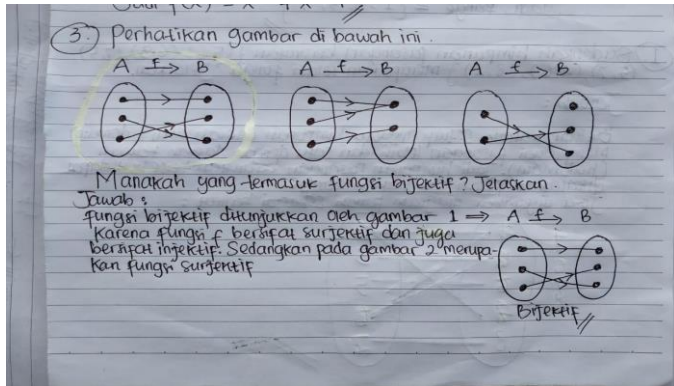 3. Perhatikan gambar di bawah ini.
A f B A f B A f B
Manakah yang termasuk fungsi bijektif? Jelaskan.
Jawab :
fungsi bijektif ditunjukkan oleh gambar 1 ⇒ A f B
karena fungsi f bersifat surjektif dan juga
bersifat injektif. Sedangkan pada gambar 2 merupa-
kan fungsi surjektif
Bijektif